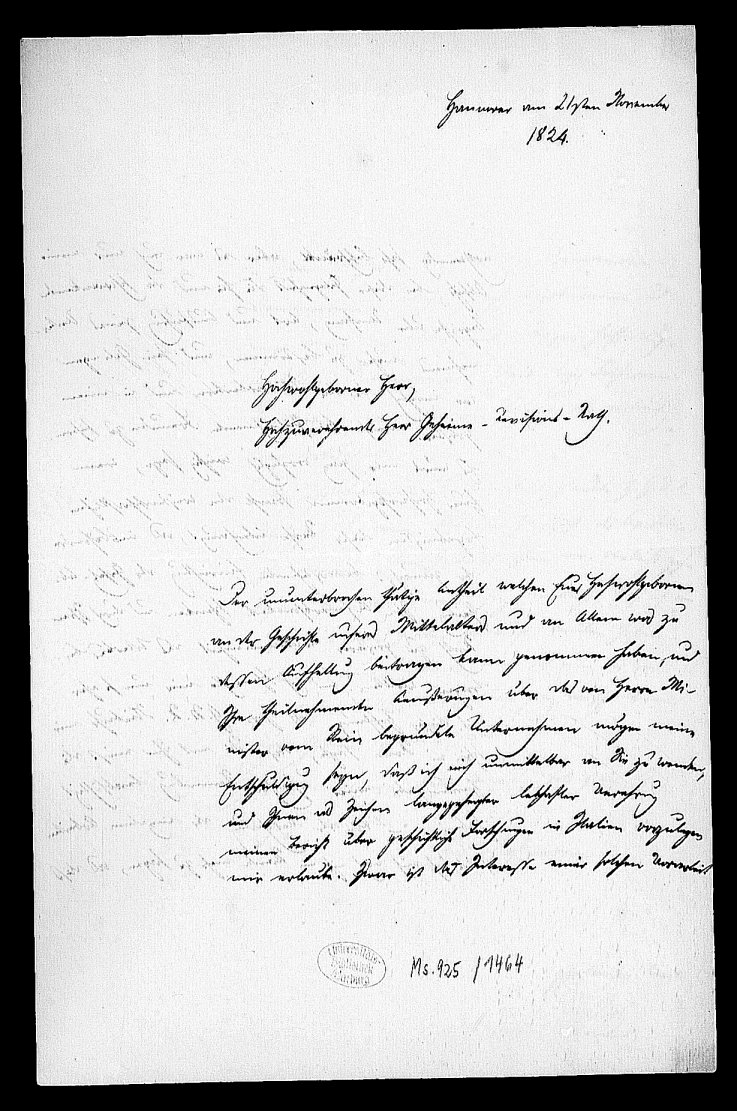 Hannover am 21sten November
1824.
Hochwohlgeborner Herr,
Hochzuverehrender Herr Geheime-Revisions-Rath.
Der ununterbrochen thätige Antheil welchen Euer Hochwohlgeboren
an der Geschichte unsers Mittelalters und an Allem was zu
dessen Aufhellung beitragen kann genommen haben, und
Ihre theilnehmenden Aeußerungen über das von Herrn Mi-
nister vom Stein begründete Unternehmen mögen meine
Entschuldigung seyn, daß ich mich unmittelbar an Sie zu wenden,
und Ihnen als Zeichen langgehegter lebhafter Verehrung
meinen Bericht über geschichtliche Forschungen in Italien vorzulegen
mir erlaube. Zwar ist das Interesse einer solchen Vorarbeit
Universitäts-
Bibliothek
Marburg
Ms. 925 / 1464